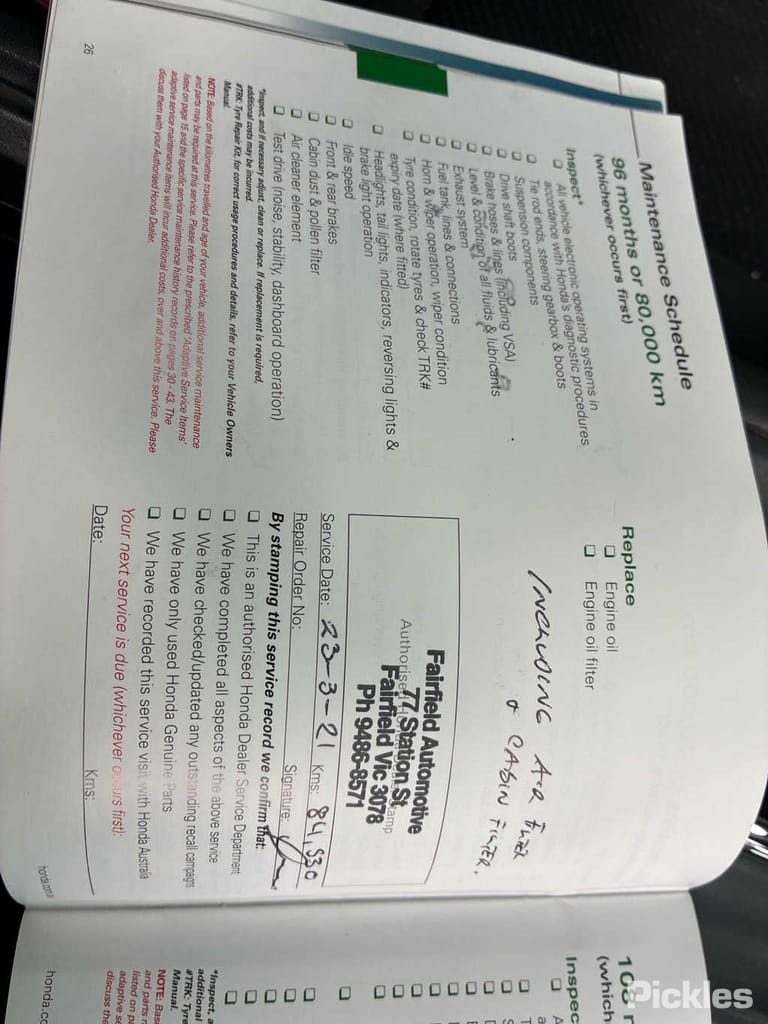 Maintenance Schedule
96 months or 80,000 km
(whichever occurs first)
Inspect*
All vehicle electronic operating systems in
accordance with Honda's diagnostic procedures
Tie rod ends, steering gearbox & boots
Suspension components
Drive shaft boots
Brake hoses & lines (including VSA)
Level & condition of all fluids & lubricants
Exhaust system
Fuel tank, lines & connections
Horn & wiper operation, wiper condition
Tyre condition, rotate tyres & check TRK#
expiry date (where fitted)
Headlights, tail lights, indicators, reversing lights &
brake light operation
Idle speed
Front & rear brakes
Cabin dust & pollen filter
Air cleaner element
Test drive (noise, stability, dashboard operation)
*Inspect, and if necessary adjust, clean or replace. If replacement is required,
additional costs may be incurred.
#TRK: Tyre Repair Kit, for correct usage procedures and details, refer to your Vehicle Owners
Manual.
NOTE: Based on the kilometres travelled and age of your vehicle, additional service maintenance
and parts may be required at this service. Please refer to the prescribed 'Adaptive Service Items'
listed on page 15 and the specific service maintenance history records on pages 30 - 43. The
adaptive service maintenance items will incur additional costs, over and above this service. Please
discuss them with your Authorised Honda Dealer.
26
Replace
Engine oil
Engine oil filter
INCLUDING AIR FILTER
+ CABIN FILTER.
Fairfield Automotive
77 Station St
Fairfield Vic 3078
Ph 9486-8571
Service Date: 23-3-21 Kms: 84,930
Repair Order No: Signature:
By stamping this service record we confirm that:
This is an authorised Honda Dealer Service Department
We have completed all aspects of the above service
We have checked/updated any outstanding recall campaigns
We have only used Honda Genuine Parts
We have recorded this service visit with Honda Australia
Your next service is due (whichever occurs first):
Date: Kms:
108
(which
Inspec
*Inspect, a
additional
#TRK: Tyre
Manual.
NOTE: Bas
and parts m
listed on p
adaptive se
discuss the
honda.co
Pickles